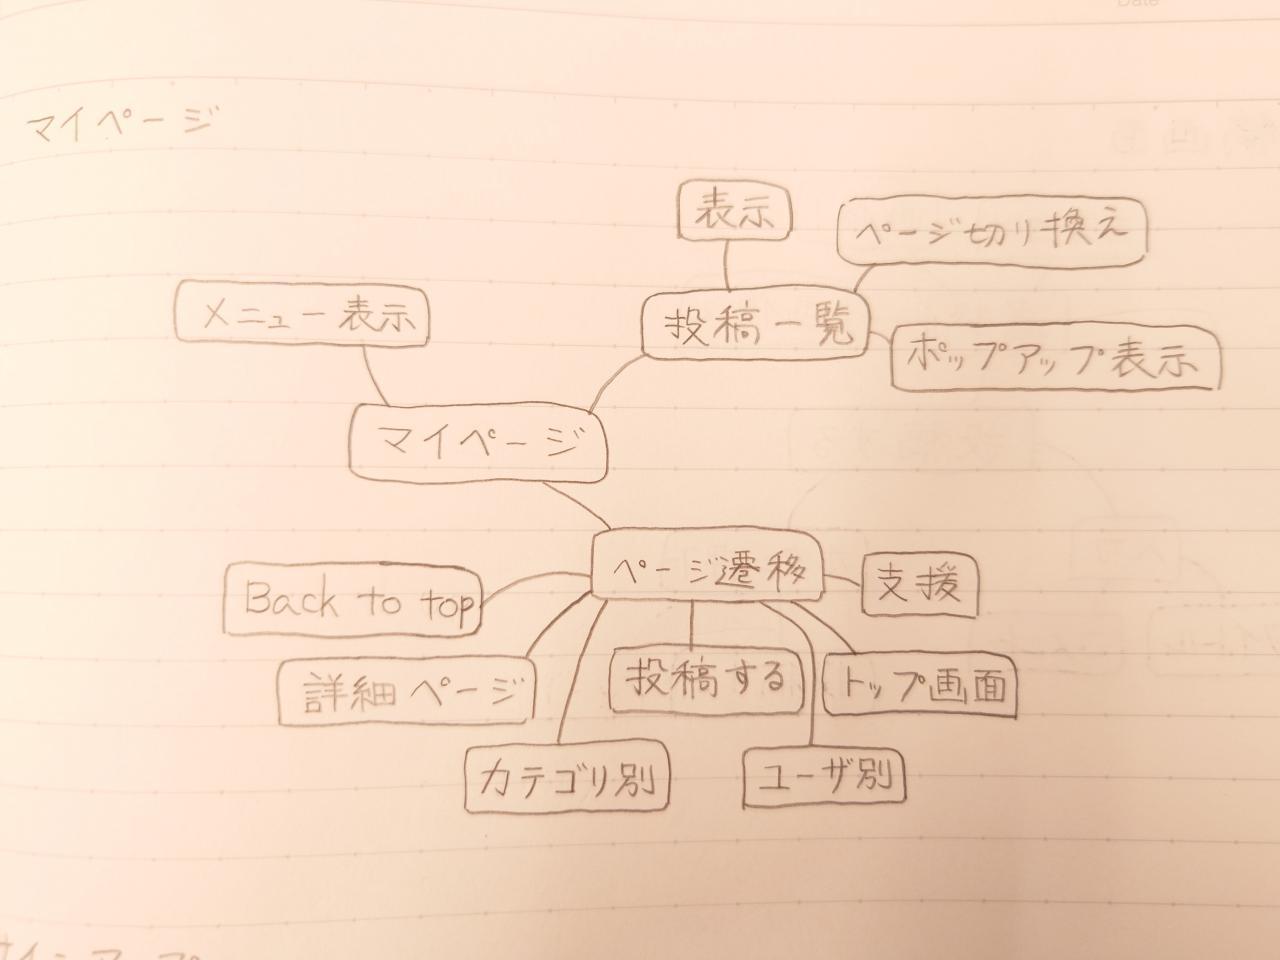 Date
マイページ
表示
ページ切り換え
メニュー表示
投稿一覧
ポップアップ表示
マイページ
ページ遷移
支援
Back to top
詳細ページ
投稿する
トップ画面
カテゴリ別
ユーザ別